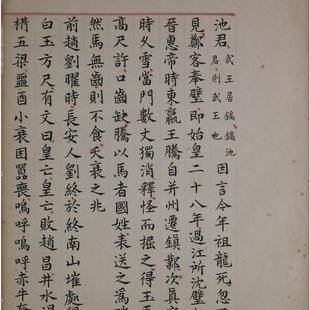 池君武王居鎬鎬池君則武王也因言今年祖龍死忽
見鄭客奉璧即始皇二十八年過江所沈璧
晉惠帝時東嬴王騰自并州遷鎮鄴次真定
時久雪當門數丈獨消釋怪而掘之得玉馬
高尺許口齒缺騰以馬者國姓表送之爲瑞
然馬無齒則不食夭衰之兆
前趙劉曜時長安人劉終於終南山摧處得
白玉方尺有文曰皇亡皇亡敗趙昌井水竭
構五梁酉小衰困囂喪嗚呼嗚呼赤牛奮